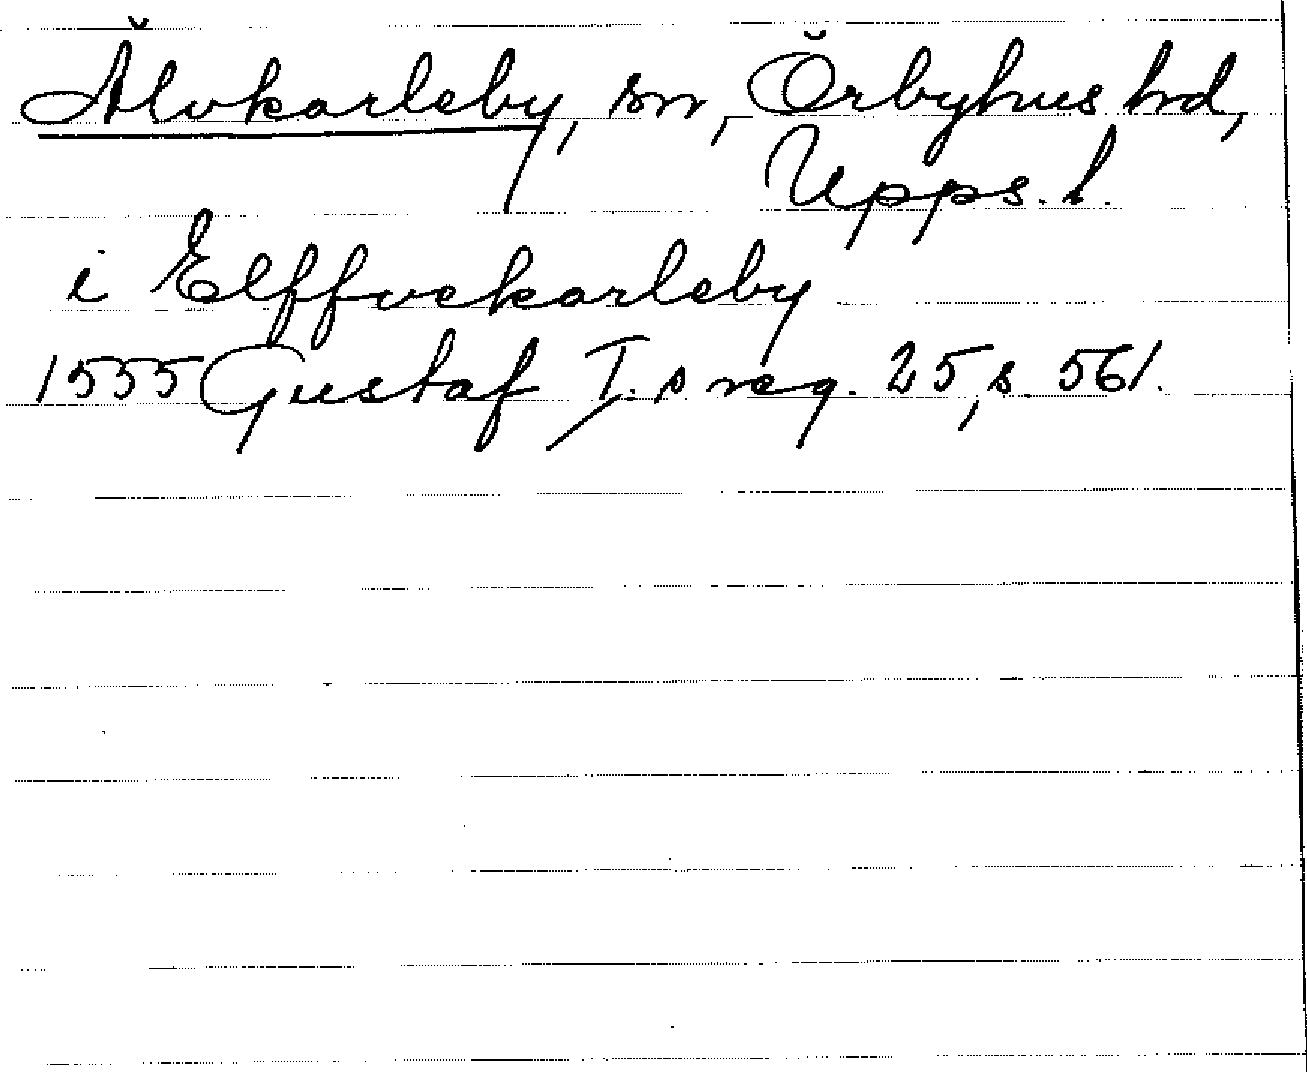 Älvkarleby, sn, Örbyhus hd,
Upps. l.
i Elffvekarleby
1555 Gustaf I.s reg. 25, s. 561.